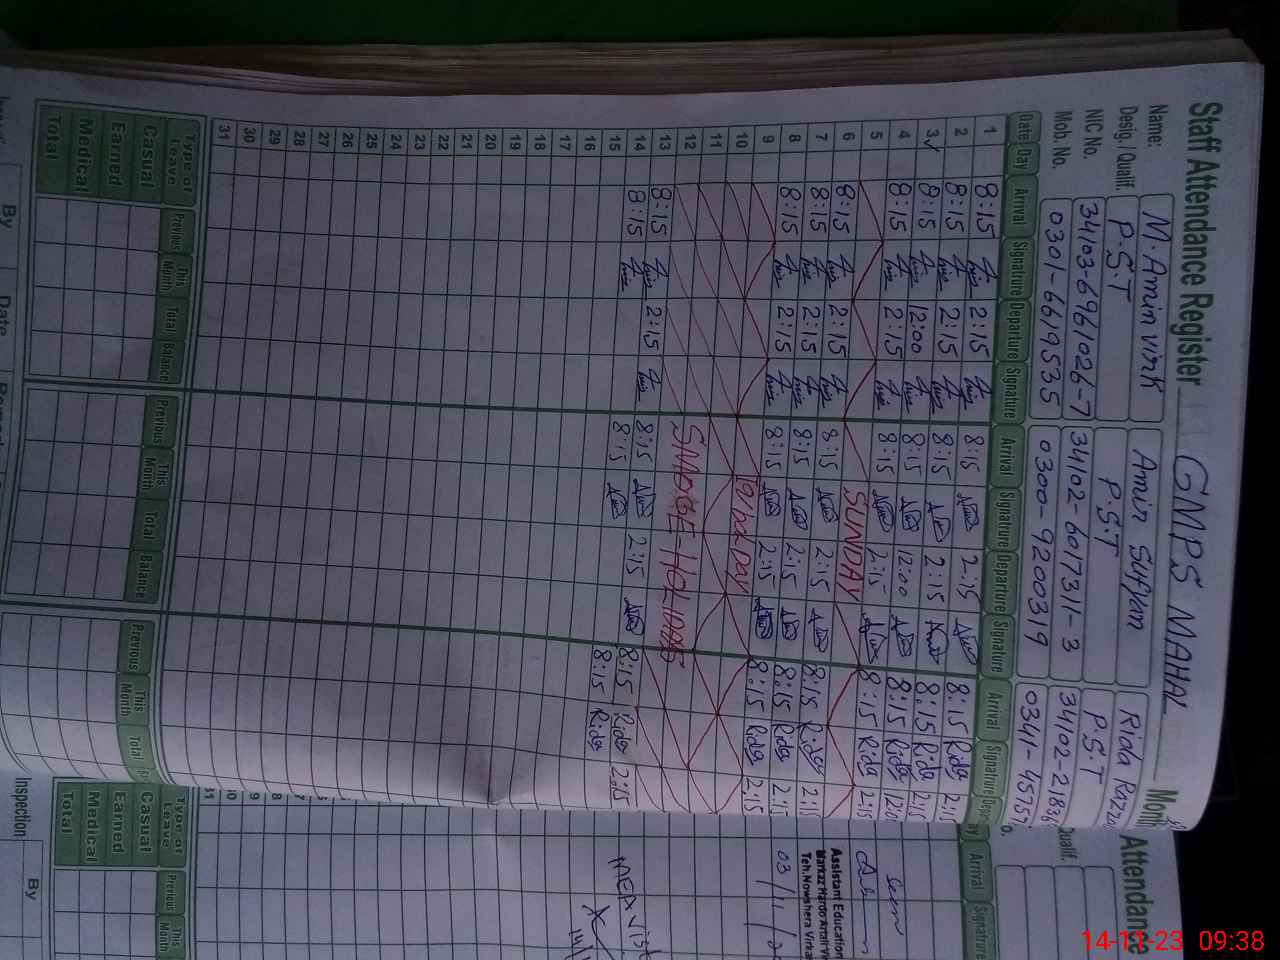 Staff Attendance Register GMPS MAHAL Month
Name: M. Amin virk Amin Sufyan Rida Razza
Desig / Qualif. P.S.T P.S.T P.S.T
NIC No. 34103-6961026-7 34102-6017311-3 34102-21836
Mob. No. 0301-6619535 0300-9200319 0341-45757
Date Day Arrival Signatrure Departure Signature Arrival Signatrure Departure Signature Arrival Signatrure Depar
1 8:15 2:15 8:15 2:15 8:15 Rida 2:1
2 8:15 2:15 8:15 2:15 8:15 Rida 2:15
3 8:15 12:00 8:15 12:00 8:15 Rida 12:0
4 8:15 2:15 8:15 2:15 8:15 Rida 2:15
5 SUNDAY
6 8:15 2:15 8:15 2:15 8:15 Rida 2:15
7 8:15 2:15 8:15 2:15 8:15 Rida 2:15
8 8:15 2:15 8:15 2:15 8:15 Rida 2:15
9
10
11
12
13 8:15 2:15 8:15 2:15 8:15 Rida 2:15
14 8:15 8:15 8:15 Rida
15
16
17
18
19
20
21
22
23
24
25
26
27
28
29
30
31
Type of Leave Previous This Month Total Balance Previous This Month Total Balance Previous This Month Total
Casual
Earned
Medical
Total
By Date
Attendance
Qualif.
Arrival Signatrure
seen
Assistant Education
Teh.Nowshera Virka
03/11/2
14/
Type of Leave Previous This Month
Casual
Earned
Medical
Total
Inspection
By
14-11-23 09:38